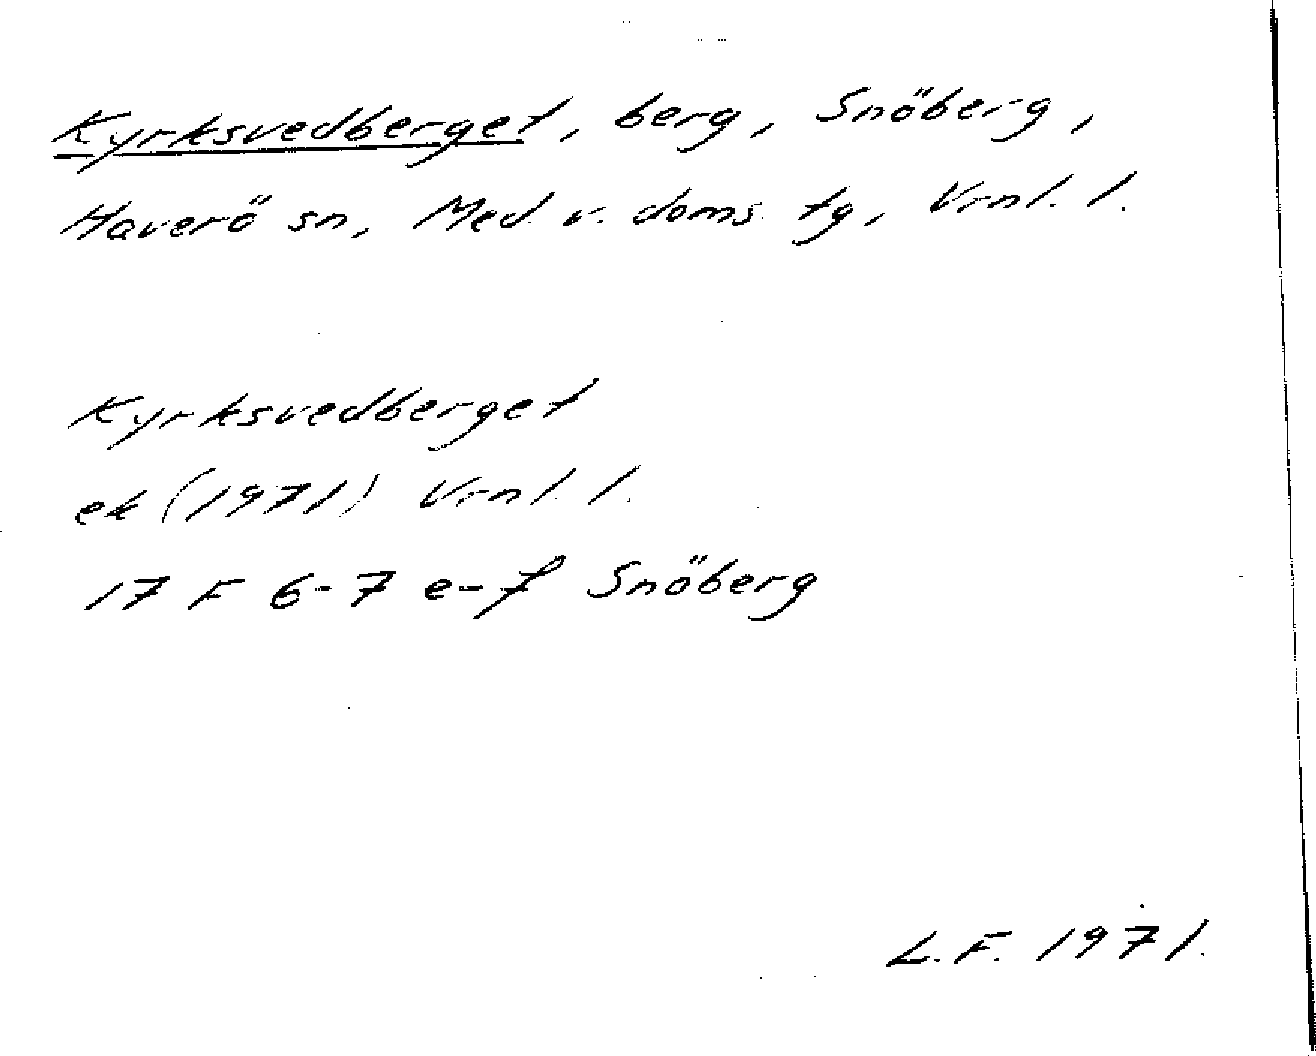 Kyrksvedberget, berg, Snöberg,
Haverö sn, Med. v. doms. tg, Vrnl. l.
Kyrksvedberget
ek (1971) Vrnl. l.
17 F 6-7 e-f Snöberg
L.F. 1971.